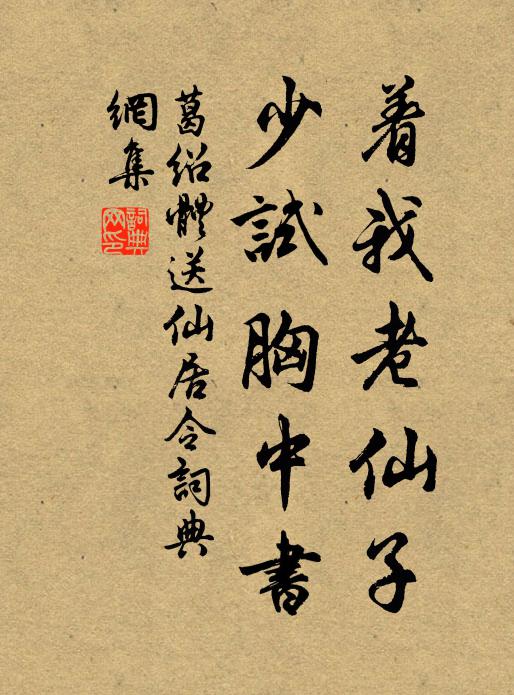 着我老仙子
少試胸中書
葛绍體送仙居令詞典
網集
詞典
网印